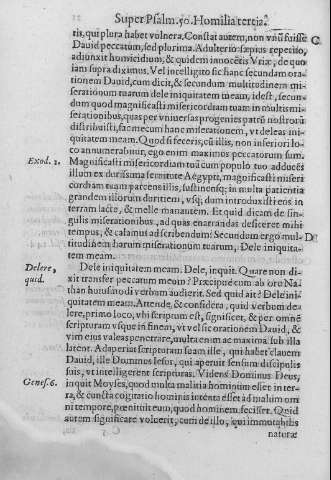 Super Psalm. 50. Homilia tertia.
tis, qui plura habet vulnera. Constat autem, non vnũ fuisse
Dauid peccatum, sed plurima. Adulterio sæpius repetito,
adiunxit homicidium, & quidem innocētis Vriæ, de quo
iam supra diximus. Vel intelligito sic hanc secundam ora-
tionem Dauid, cum dicit, & secundum multitudinem mi-
serationum tuarum dele iniquitatem meam, idest, secun-
dum quod magnificasti misericordiam tuam in multis mi-
serationibus, quas per vniuersas progenies patrũ nostrorũ
distribuisti, fac mecum hanc miserationem, vt deleas ini-
quitatem meam. Quod si feceris, cũ illis, non inferiori lo-
co annumerabimur, ego enim maximus peccatorum sum.
Exod. 2. Magnificasti misericordiam tuã cum populo tuo adducẽs
illum ex durissima seruitute Aegypti, magnificasti miseri
cordiam tuam parcens illis, sustinensq; in multa patientia
grandem illorum duritiem, vsq; dum introduxisti eos in
terram lacte, & melle manantem. Et quid dicam de sin-
gulis miserationibus, ad quas enarrandas deficeret mihi
tempus, & calamus ad scribendum? Secundum ergo mul- D
titudinẽ harum miserationum tuarum, Dele iniquita-
tem meam.
Delere, quid. Dele iniquitatem meam. Dele, inquit. Quare non di-
xit transfer peccatum meum? Præcipue cum ab ore Na-
than huiusmodi verbum audierit. Sed quid ait? Dele ini-
quitatem meam. Attende, & considera, quid verbum de-
lere, primo loco, vbi scriptum est, significet, & per omnẽ
scripturam vsque in finem, vt vel sic orationem Dauid, &
vim eius valeas penetrare, multa enim ac maxima sub illa
latent. Adaperiat scripturam suam ille, qui habet clauem
Dauid, ille Dominus Iesus, qui aperuit sensum discipulis
suis, vt intelligerent scripturas. Videns Dominus Deus,
Genes. 6. inquit Moyses, quod multa malitia hominum esset in ter-
ra, & cuncta cogitatio hominis intenta esset ad malum om
ni tempore, pœnituit eum, quod hominem fecisset. Quid
autem significare voluerit, cum de illo, qui immutabilis
naturæ